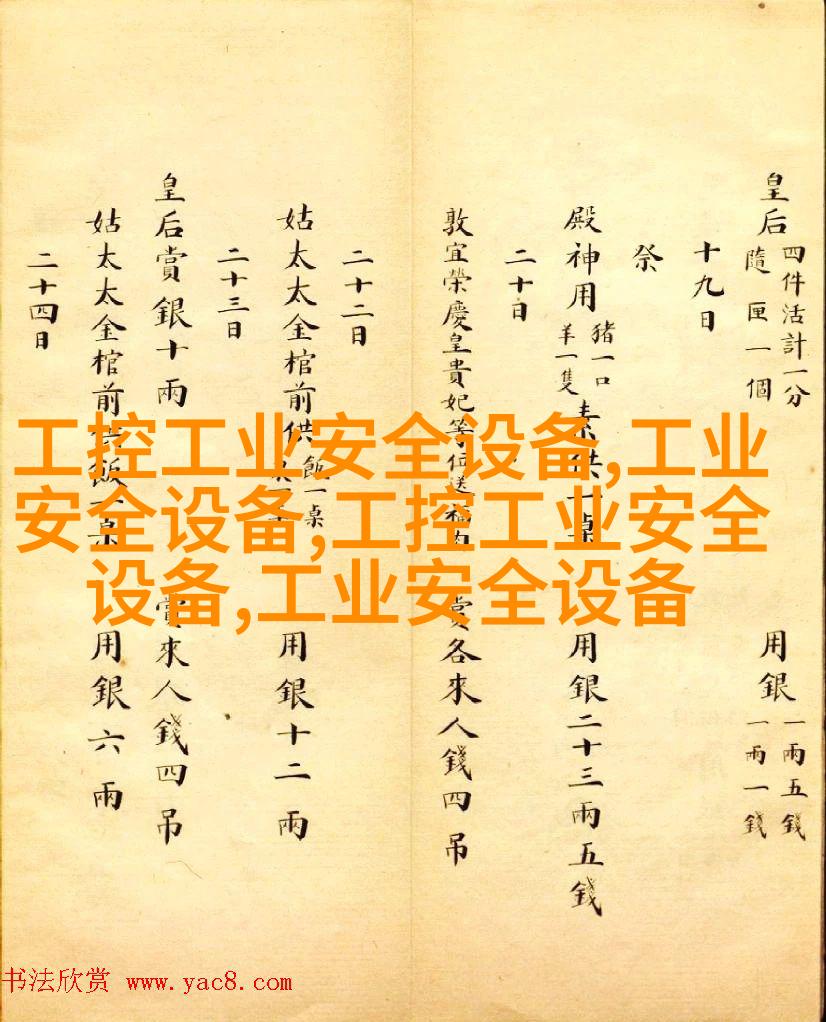 皇后 四件活計一分 隨匣一個 用銀 一兩五錢 一兩一錢
十九日
祭
殿神用 猪一口 羊一隻 素供一桌 用銀二十三兩五錢
二十日
敦宜榮慶皇貴妃等位送福肉 賞各來人錢四吊
二十二日
姑太太金棺前供 飯一桌 用銀十二兩
二十三日
皇后賞銀十兩 賞來人錢四吊
姑太太金棺前供飯一桌 用銀六兩
二十四日
工控工业安全设备,工业
安全设备,工控工业安全
设备,工业安全设备
书法欣赏 www.yac8.com